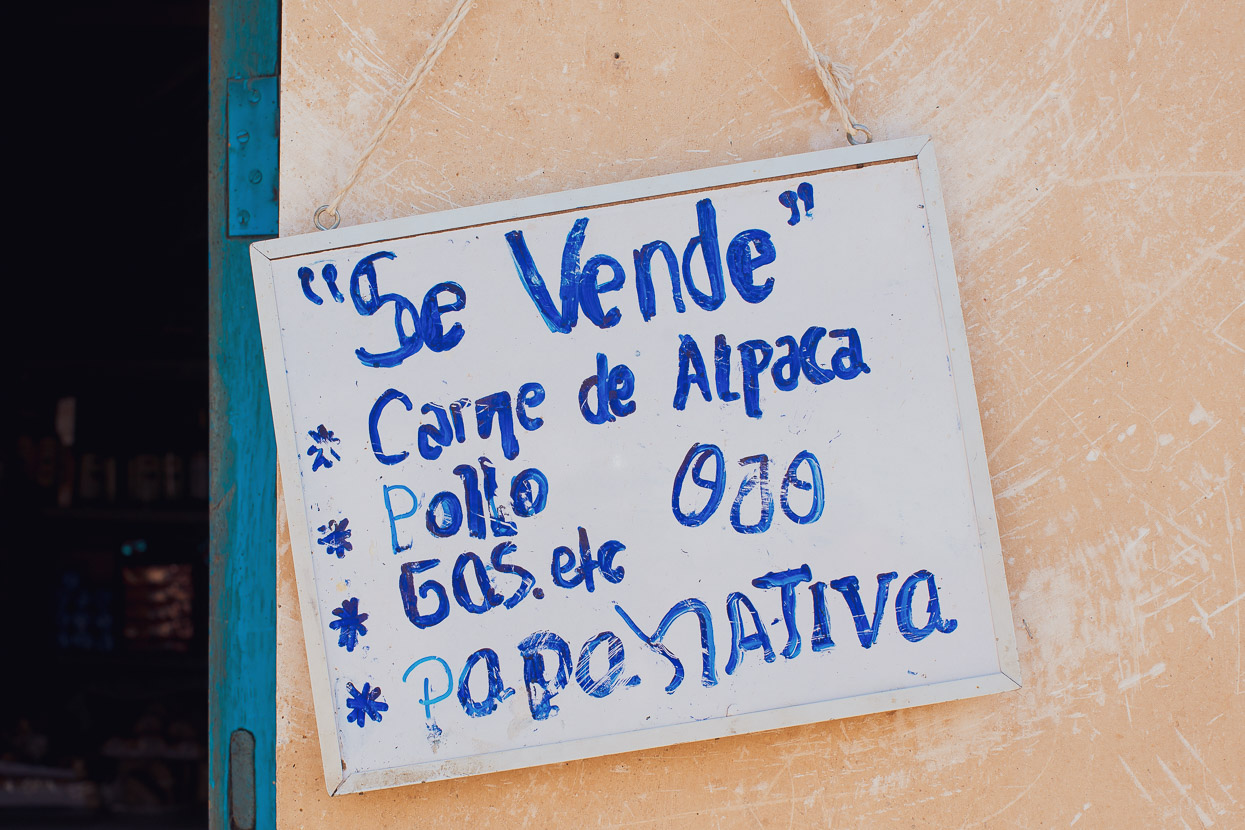 "Se Vende"
* Carne de Alpaca
* Pollo OJO
* GAS.etc
* papa NATIVA